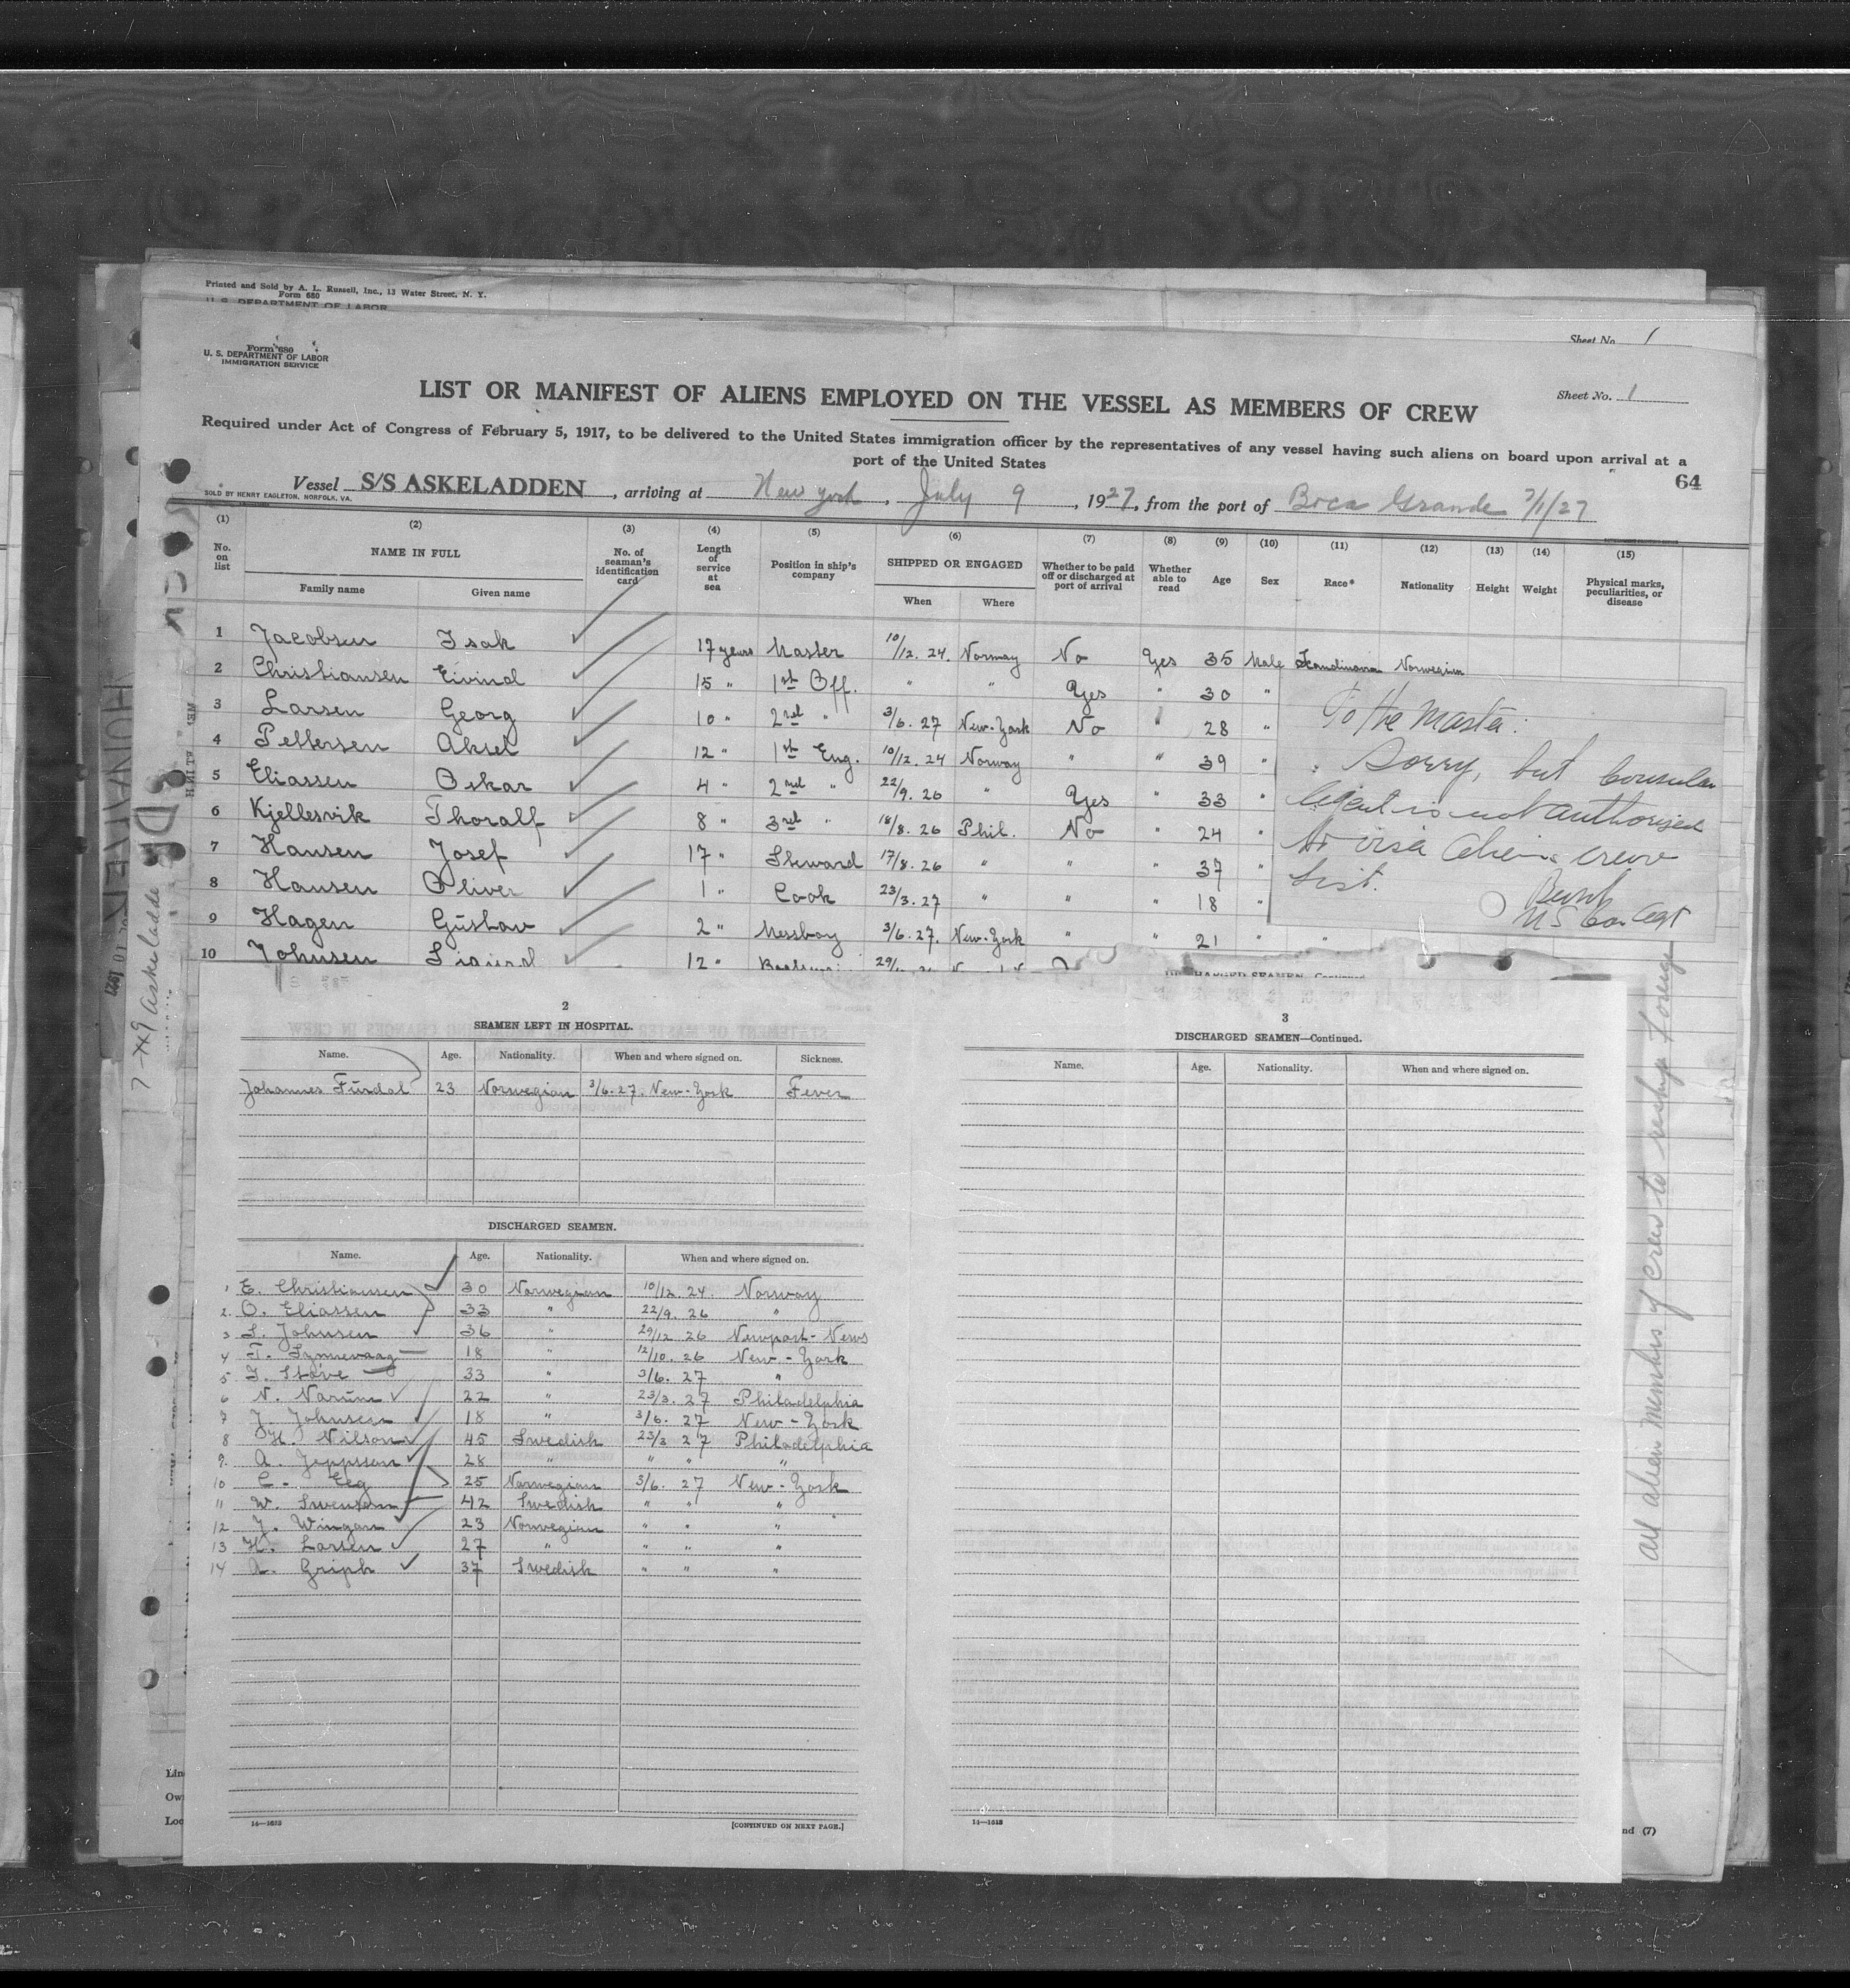 Printed and Sold by A. L. Russell, Inc., 13 Water Street, N. Y.
Form 680
U. S. DEPARTMENT OF LABOR
Sheet No. 1
Form 680
U. S. DEPARTMENT OF LABOR
IMMIGRATION SERVICE
Sheet No. 1
LIST OR MANIFEST OF ALIENS EMPLOYED ON THE VESSEL AS MEMBERS OF CREW
Required under Act of Congress of February 5, 1917, to be delivered to the United States immigration officer by the representatives of any vessel having such aliens on board upon arrival at a
port of the United States
64
Vessel S/S ASKELADDEN, arriving at New York, July 9, 1927, from the port of Boca Grande 7/1/27
SOLD BY HENRY EAGLETON, NORFOLK, VA.
(1) (2) (3) (4) (5) (6) (7) (8) (9) (10) (11) (12) (13) (14) (15)
No. on list NAME IN FULL No. of seaman's identification card Length of service at sea Position in ship's company SHIPPED OR ENGAGED Whether to be paid off or discharged at port of arrival Whether able to read Age Sex Race* Nationality Height Weight Physical marks, peculiarities, or disease
Family name Given name When Where
1 Jacobsen Isak 17 years Master 10/12. 24. Norway No Yes 35 Male Scandinavia Norwegian
2 Christiansen Eivind 15 " 1st Off. " " Yes " 30 "
3 Larsen Georg 10 " 2nd " 3/6. 27 New-York No " 28 "
4 Pettersen Aksel 12 " 1st Eng. 10/12. 24 Norway " " 39 "
5 Eliassen Oskar 4 " 2nd " 22/9. 26 " Yes " 33 "
6 Kjellesvik Thoralf 8 " 3rd " 18/8. 26 Phil. No " 24 "
7 Hansen Josef 17 " Steward 17/8. 26 " " " 37 "
8 Hansen Oliver 1 " Cook 23/3. 27 " " " 18 "
9 Hagen Gustav 2 " Messboy 3/6. 27. New-York " " 21 " "
10 Johnsen Sigurd 12 "
To the Master:
Sorry, but Consular
Agent is not authorized
to visa Alien crew
List.
US Con Agt
7-29 Askeladde
All alien members of crew to reship foreign
2
SEAMEN LEFT IN HOSPITAL.
Name. Age. Nationality. When and where signed on. Sickness.
Johannes Furdal 23 Norwegian 3/6. 27. New-York Fever
DISCHARGED SEAMEN.
Name. Age. Nationality. When and where signed on.
1 E. Christiansen 30 Norwegian 10/12. 24. Norway
2. O. Eliassen 33 " 22/9. 26 "
3 S. Johnsen 36 " 29/12 26 Newport-News
4 T. Synnevaag 18 " 12/10. 26 New-York
5 I. Støve 33 " 3/6. 27 "
6 N. Narum 22 " 23/3. 27 Philadelphia
7 J. Johnsen 18 " 3/6. 27 New-York
8 H. Nilson 45 Swedish 23/3 27 Philadelphia
9. A. Jeppsson 28 " " " "
10 C. Eeg 25 Norwegian 3/6. 27 New-York
11 W. Swenson 42 Swedish " " "
12 J. Wingan 23 Norwegian " " "
13 H. Larsen 27 " " " "
14 A. Griph 37 Swedish " " "
14—1638
[CONTINUED ON NEXT PAGE.]
DISCHARGED SEAMEN—Continued
3
DISCHARGED SEAMEN—Continued.
Name. Age. Nationality. When and where signed on.
14—1638
Lin
Ow
Loc
nd (7)